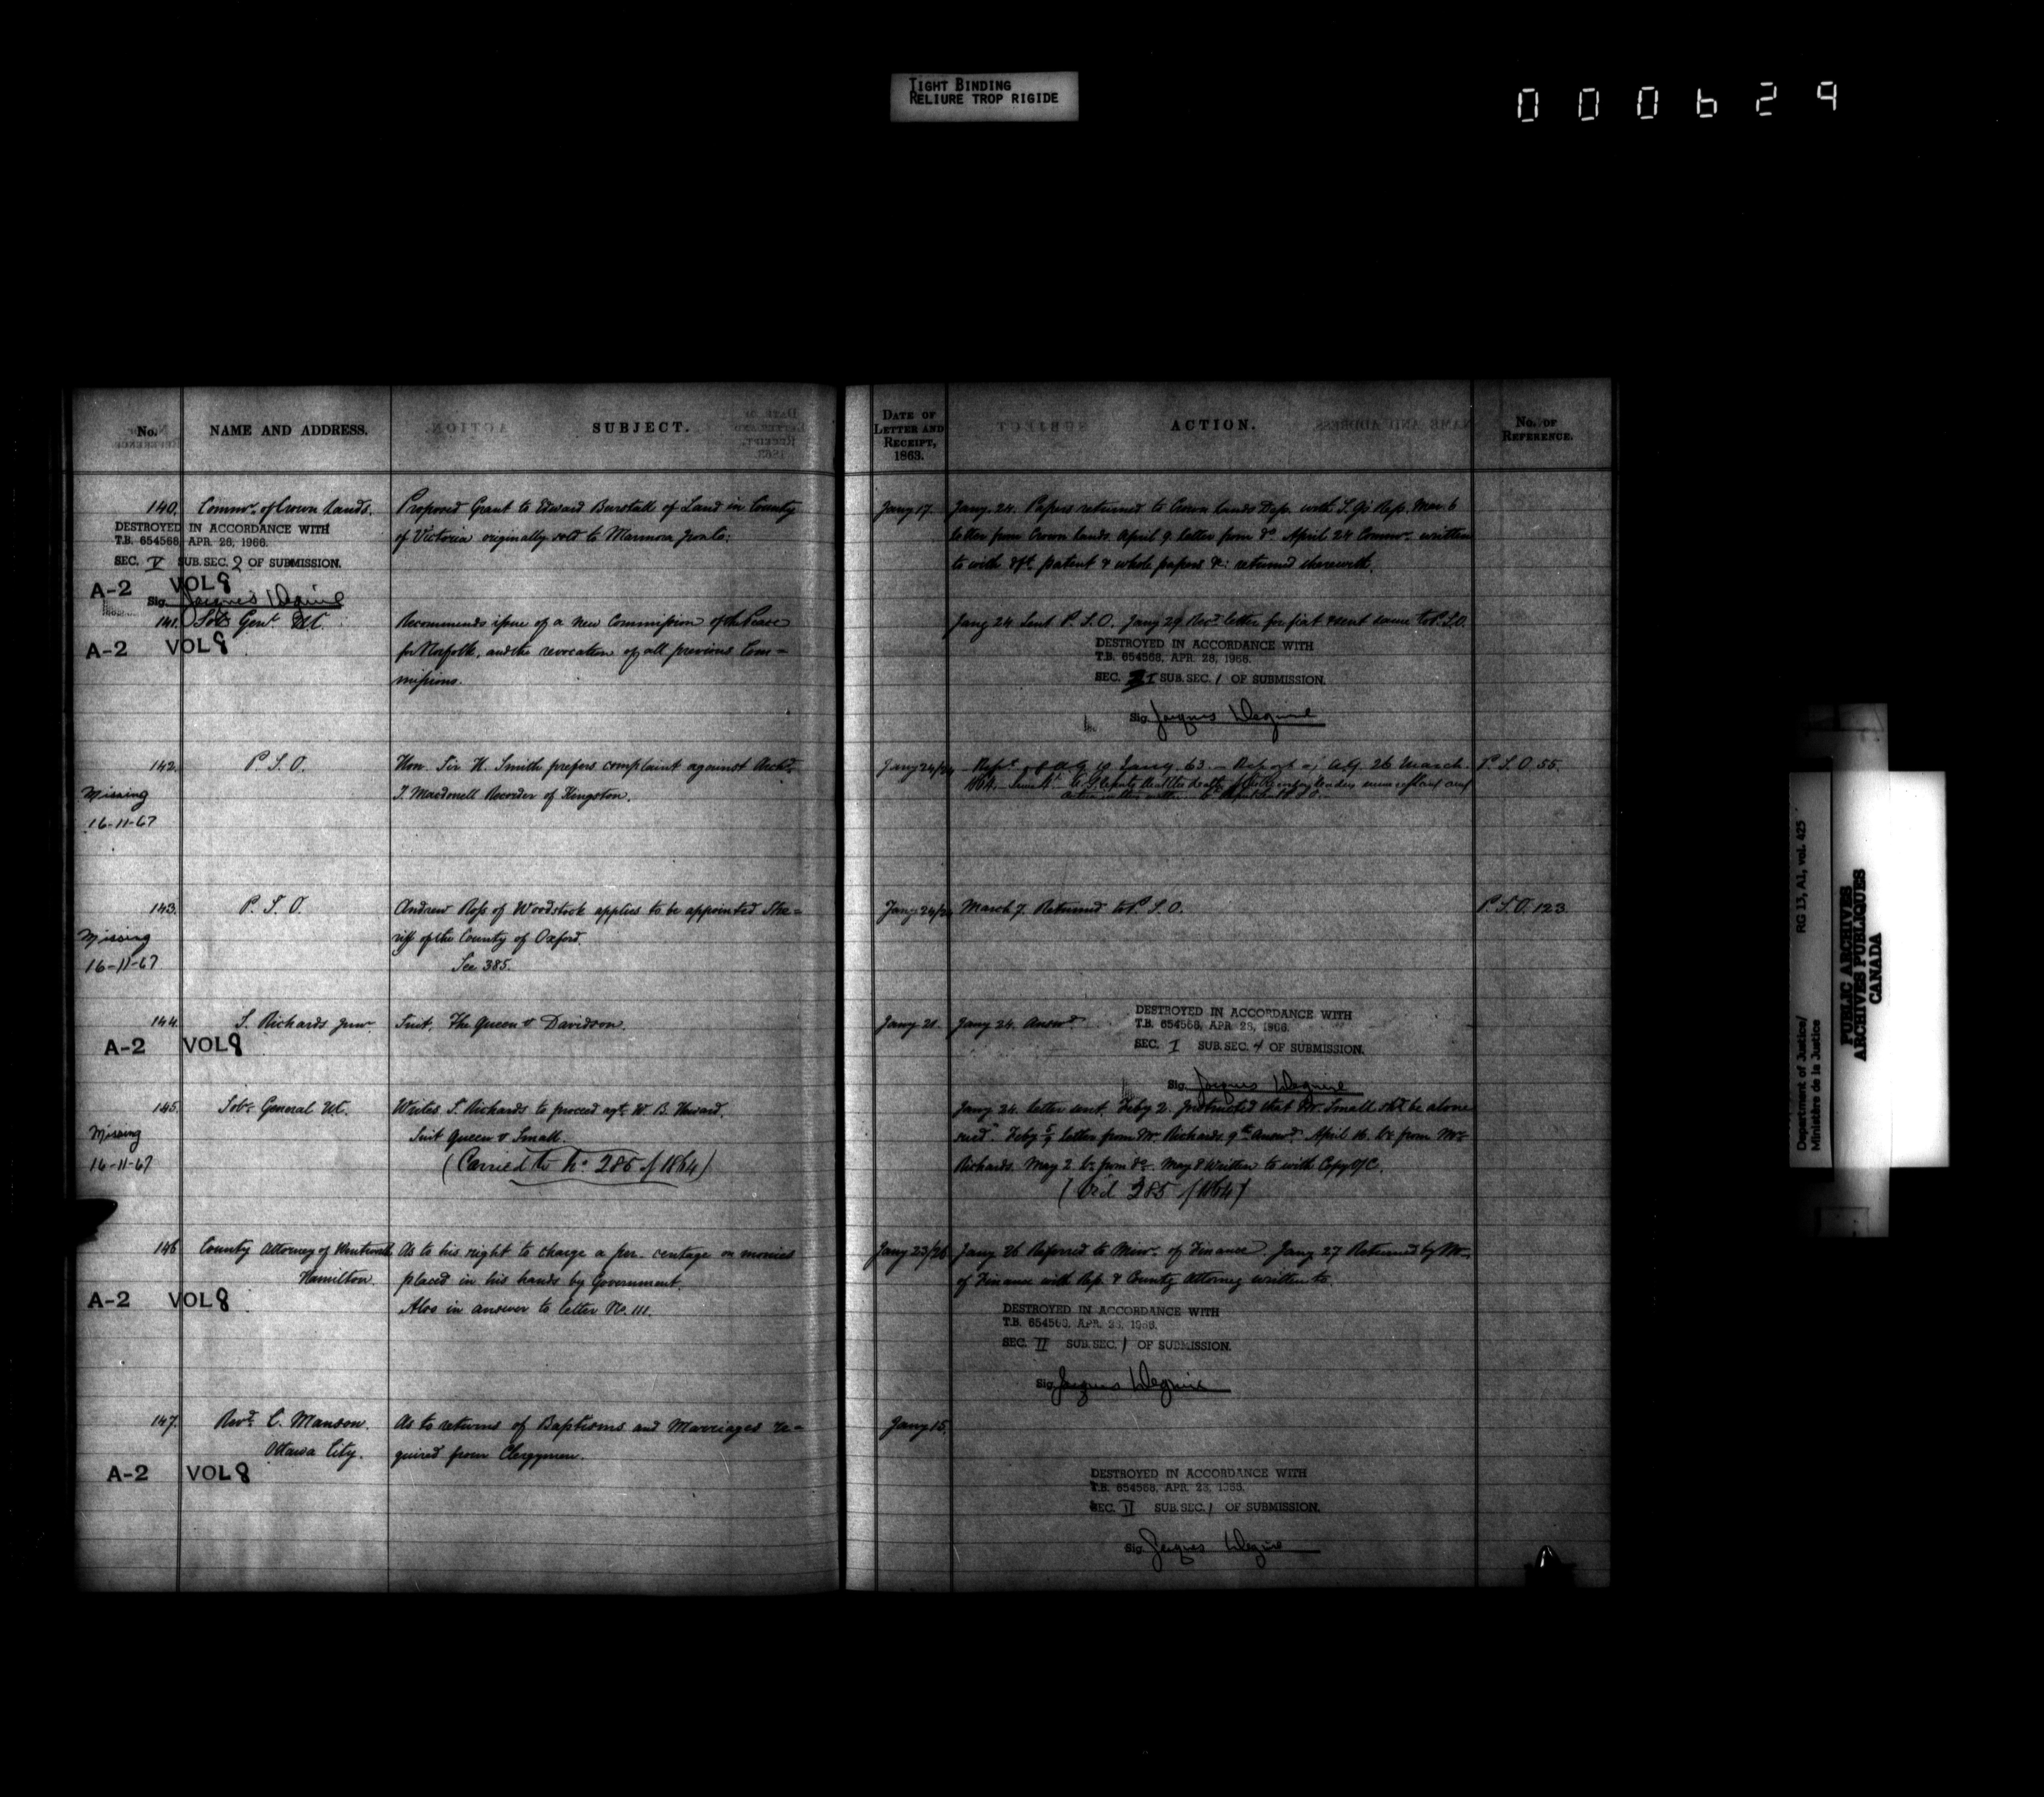 TIGHT BINDING
RELIURE TROP RIGIDE
000629
No.
NAME AND ADDRESS.
SUBJECT.
DATE OF
LETTER AND
RECEIPT,
1863.
ACTION.
No. OF
REFERENCE.
140. Commr. of Crown Lands.
Proposed Grant to Edward Burstall of Land in County
of Victoria originally sold to Marmora
Jany 17.
Jany. 24. Papers returned to Crown Lands Dep. with S. G's Rep. Mar. 6
letter from Crown Lands. April 9. letter from do. April 24 Commr. written
to with patent & whole papers &c: returned therewith.
DESTROYED IN ACCORDANCE WITH
T.B. 654568, APR. 28, 1966.
SEC. V SUB. SEC. 2 OF SUBMISSION.
A-2 VOL 8
Sig. Jacques Deguire
141. Solr. Genl. U.C.
A-2 VOL 8
Recommends issue of a new Commission of the Peace
for Norfolk, and the revocation of all previous Com=
missions.
Jany 24 Sent P. S. O. Jany 29 Recd. letter for fiat & sent same to P.S.O.
DESTROYED IN ACCORDANCE WITH
T.B. 654568, APR. 28, 1966.
SEC. I SUB. SEC. 1 OF SUBMISSION.
Sig. Jacques Deguire
142. P. S. O.
Missing
16-11-67
Hon. Sir H. Smith prefers complaint against Archd.
J. Macdonell Recorder of Kingston.
Jany 24/24
Jany. 63. Report of A.G. 26 March
1864.
P. S. O. 55.
143. P. S. O.
Missing
16-11-67
Andrew Ross of Woodstock applies to be appointed She=
riff of the County of Oxford.
See 385.
Jany 24/24
March 7. Returned to P. S. O.
P. S. O. 123.
144. S. Richards Junr.
A-2 VOL 8
Suit, The Queen v Davidson.
Jany 21.
Jany 24. Answd.
DESTROYED IN ACCORDANCE WITH
T.B. 654568, APR. 28, 1966.
SEC. I SUB. SEC. 4 OF SUBMISSION.
Sig. Jacques Deguire
145. Solr. General U.C.
Missing
16-11-67
Writes S. Richards to proceed agt. W. B. Heward.
Suit Queen v Small.
(Carried to No. 285 of 1864)
Jany 24. letter sent. Feby 2. Instructed that Dr. Small shd. be alone
sued. Feby 5/9 letter from Mr. Richards 9th. answd. April 16. Lr. from Mr.
Richards. May 2 Lr. from do. May 8 Written to with Copy O/C.
(Vid 285 /1864)
146. County Attorney of Wentworth
Hamilton.
A-2 VOL 8
As to his right to charge a per-centage on monies
placed in his hands by Government.
Also in answer to letter No. 111.
Jany 23/26
Jany 26 Referred to Minr. of Finance. Jany 27 Returned by Mr.
of Finance with Rep. & County Attorney written to.
DESTROYED IN ACCORDANCE WITH
T.B. 654568, APR. 28, 1966.
SEC. II SUB. SEC. 1 OF SUBMISSION.
Sig. Jacques Deguire
147. Revd. C. Manson.
Ottawa City.
A-2 VOL 8
As to returns of Baptisms and Marriages re=
quired from Clergymen.
Jany 15.
DESTROYED IN ACCORDANCE WITH
T.B. 654568, APR. 28, 1966.
SEC. II SUB. SEC. 1 OF SUBMISSION.
Sig. Jacques Deguire
Department of Justice/
Ministère de la Justice
RG 13, A1, vol. 425
PUBLIC ARCHIVES
ARCHIVES PUBLIQUES
CANADA